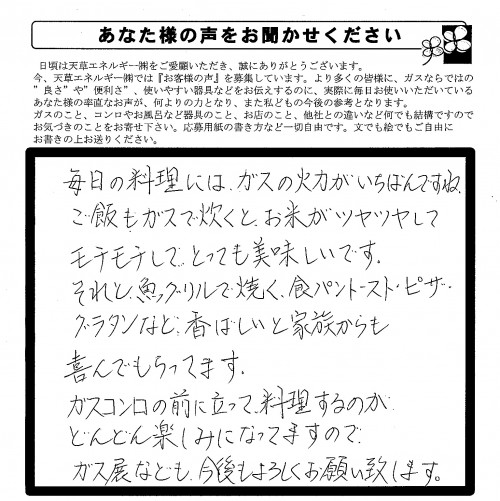 あなた様の声をお聞かせください
日頃は天草エネルギー㈱をご愛顧いただき、誠にありがとうございます。
今、天草エネルギー㈱では『お客様の声』を募集しています。より多くの皆様に、ガスならではの
"良さ"や"便利さ"、使いやすい器具などをお伝えするのに、実際に毎日お使いいただいている
あなた様の率直なお声が、何よりの力となり、また私どもの今後の参考となります。
ガスのこと、コンロやお風呂など器具のこと、お店のこと、他社との違いなど何でも結構ですので
お気づきのことをお寄せ下さい。応募用紙の書き方など一切自由です。文でも絵でもご自由に
お書きの上お送りください。
毎日の料理には、ガスの火力がいちばんですね。
ご飯もガスで炊くと、お米がツヤツヤして
モチモチして、とっても美味しいです。
それと、魚グリルで焼く、食パントースト・ピザ・
グラタンなど、香ばしいと家族からも
喜んでもらってます。
ガスコンロの前に立って、料理するのが
どんどん楽しみになってますので、
ガス展なども、今後もよろしくお願い致します。